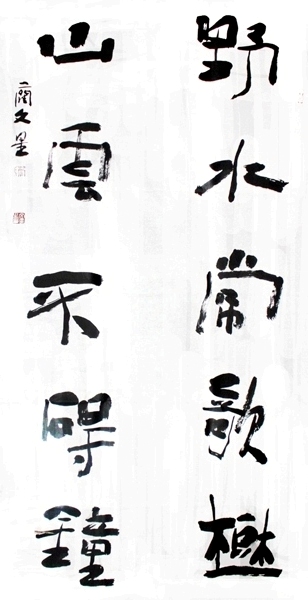 野水常歌
山雲不碍鐘
文星